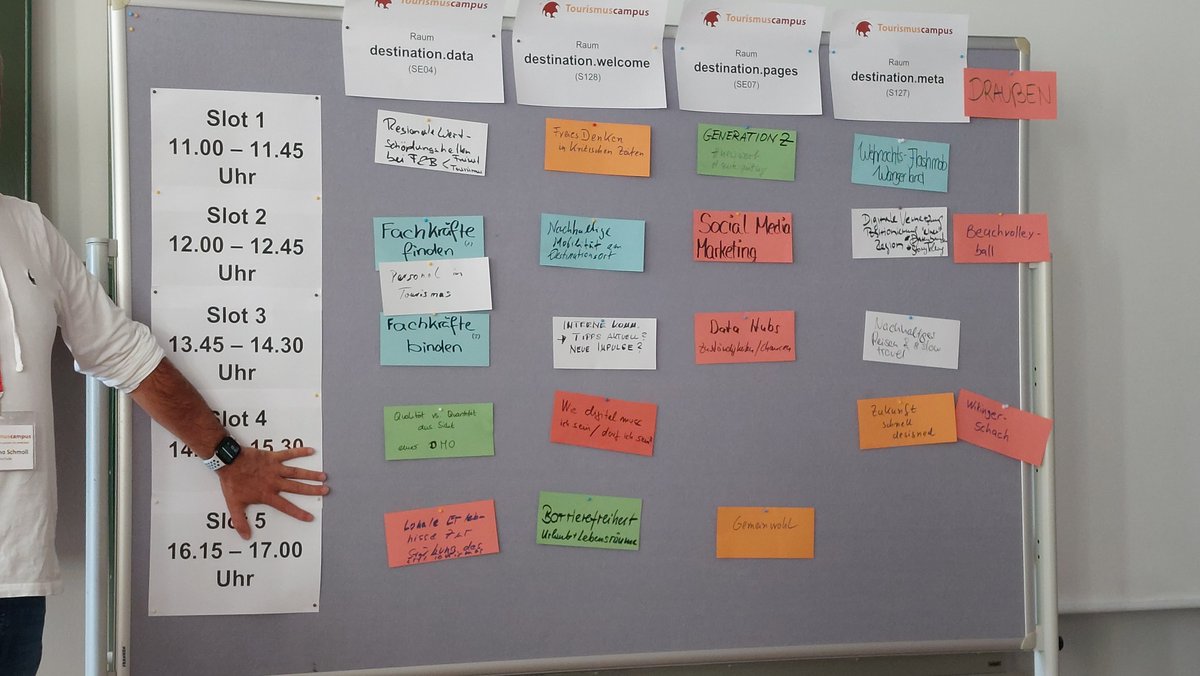 Tourismuscampus
Raum
destination.data
(SE04)
Tourismuscampus
Raum
destination.welcome
(S128)
Tourismuscampus
Raum
destination.pages
(SE07)
Tourismuscampus
Raum
destination.meta
(S127)
DRAUßEN
Slot 1
11.00 – 11.45
Uhr
Regionale Wert-
schöpfungsketten
bei
Tourismus
Freies Denken
in kritischen Zeiten
GENERATION Z
Weihnachts-Flashmob
Wangerland
Slot 2
12.00 – 12.45
Uhr
Fachkräfte
finden
Personal im
Tourismus
Nachhaltige
Mobilität am
Destinationsort
Social Media
Marketing
Digitale Vernetzung
Region
Beachvolley-
ball
Slot 3
13.45 – 14.30
Uhr
Fachkräfte
binden
INTERNE KOMM.
→ TIPPS AKTUELL?
NEUE IMPULSE?
Data Hubs
Zuständigkeiten/Chancen
Nachhaltiges
Reisen & Slow
travel
Slot 4
15.30
Qualität vs. Quantität
aus Sicht
einer DMO
Wie digital muss
ich sein/darf ich sein?
Zukunft
schnell
designed
Wikinger-
Schach
Slot 5
16.15 – 17.00
Uhr
Lokale Erleb-
nisse zur
Stärkung des
Barrierefreiheit
Urlaub+Lebensräume
Gemeinwohl
muscampus
Schmoll